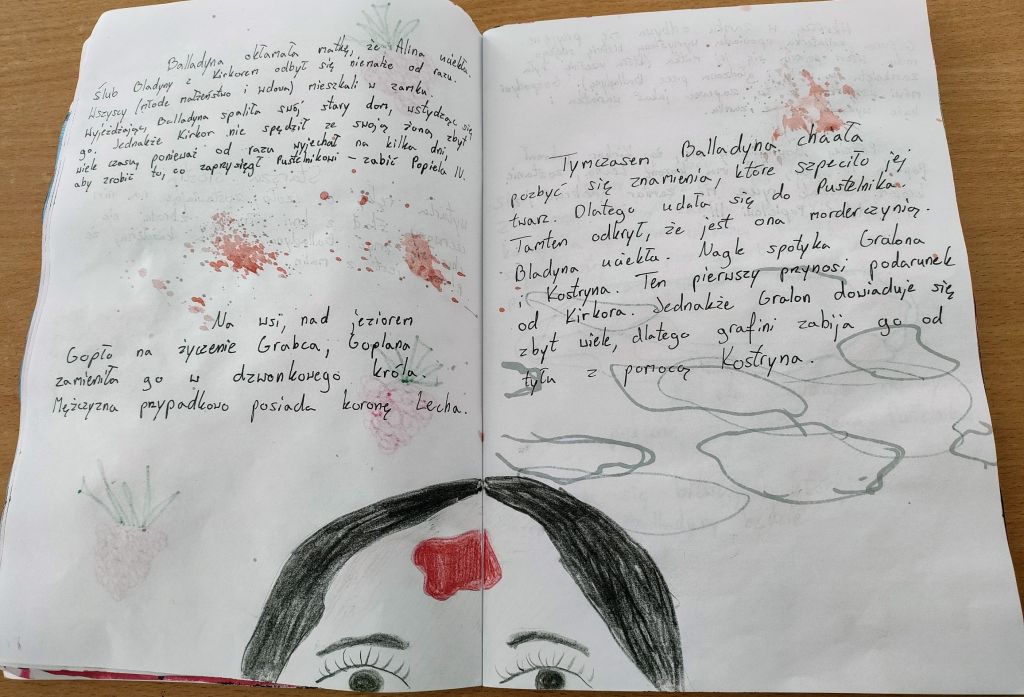 Balladyna okłamała matkę, że Alina uciekła.
Ślub Bladyny z Kirkorem odbył się nienake od razu.
Wszyscy (młode małżeństwo i wdowa) mieszkali w zamku.
Wyjeżdżając, Balladyna spaliła swój stary dom, wstydząc się
go. Jednakże Kirkor nie spędził ze swoją żoną, zbyt
wiele czasu, ponieważ od razu wyjechał na kilka dni,
aby zrobić to, co zaprzysięgł Pustelnikowi – zabić Popiela IV.
Na wsi, nad jeziorem
Gopło na życzenie Grabca, Goplana
zamieniła go w dzwonkowego króla.
Mężczyzna przypadkowo posiada koronę Lecha.
Tymczasem Balladyna chciała
pozbyć się znamienia, które szpeciło jej
twarz. Dlatego udała się do Pustelnika.
Tamten odkrył, że jest ona morderczynią.
Bladyna uciekła. Nagle spotyka Gralona
i Kostryna. Ten pierwszy przynosi podarunek
od Kirkora. Jednakże Gralon dowiaduje się
zbyt wiele, dlatego grafini zabija go od
tyłu z pomocą Kostryna.